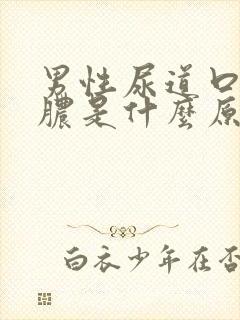 男性尿道口
膿是什麼原
白衣少年在否